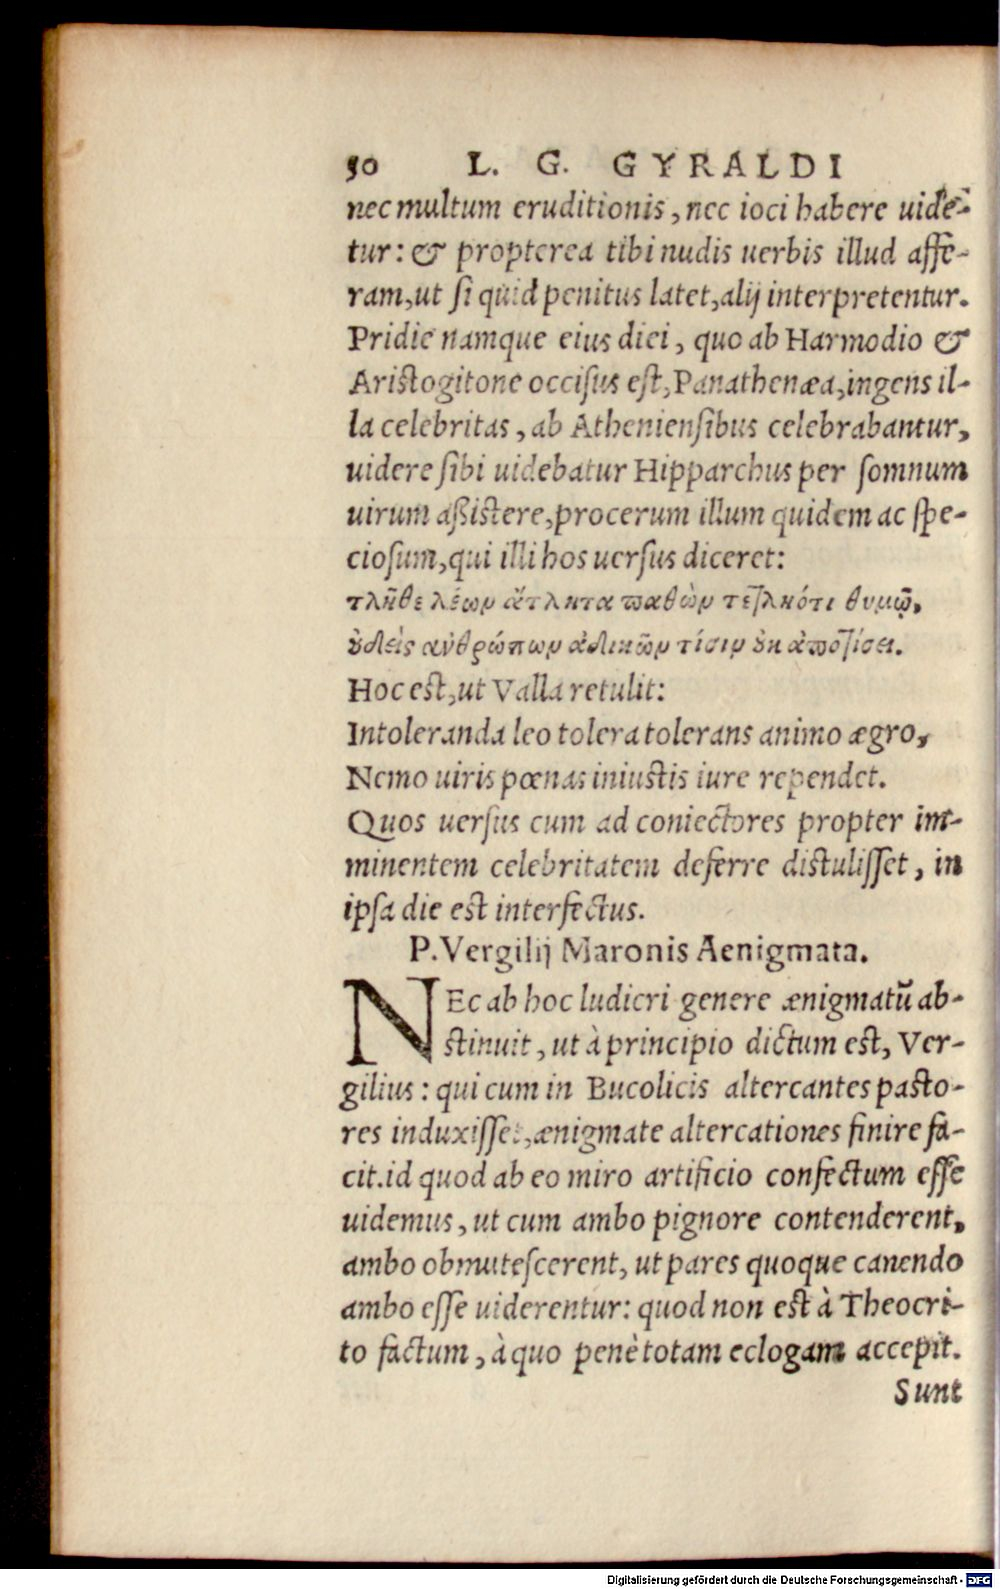 50 L. G. GYRALDI
nec multum eruditionis, nec ioci habere uide-
tur: & propterea tibi nudis uerbis illud affe-
ram, ut si quid penitus latet, alij interpretentur.
Pridie namque eius diei, quo ab Harmodio &
Aristogitone occisus est, Panathenæa, ingens il-
la celebritas, ab Atheniensibus celebrabantur,
uidere sibi uidebatur Hipparchus per somnum
uirum aßistere, procerum illum quidem ac spe-
ciosum, qui illi hos uersus diceret:
τλῆθι λέων ἄτλητα παθὼν τετληότι θυμῷ,
ȣ̓δεὶς ἀνθρώπων ἀδικῶν τίσιν ȣ̓κ ἀποτίσει.
Hoc est, ut Valla retulit:
Intoleranda leo tolera tolerans animo ægro,
Nemo uiris pœnas iniustis iure rependet.
Quos uersus cum ad coniectores propter im-
minentem celebritatem deferre distulisset, in
ipsa die est interfectus.
P. Vergilij Maronis Aenigmata.
NEc ab hoc ludicri genere ænigmatũ ab-
stinuit, ut à principio dictum est, Ver-
gilius: qui cum in Bucolicis altercantes pasto-
res induxisset, ænigmate altercationes finire fa-
cit. id quod ab eo miro artificio confectum esse
uidemus, ut cum ambo pignore contenderent,
ambo obmutescerent, ut pares quoque canendo
ambo esse uiderentur: quod non est à Theocri-
to factum, à quo penè totam eclogam accepit.
Sunt
Digitalisierung gefördert durch die Deutsche Forschungsgemeinschaft - DFG